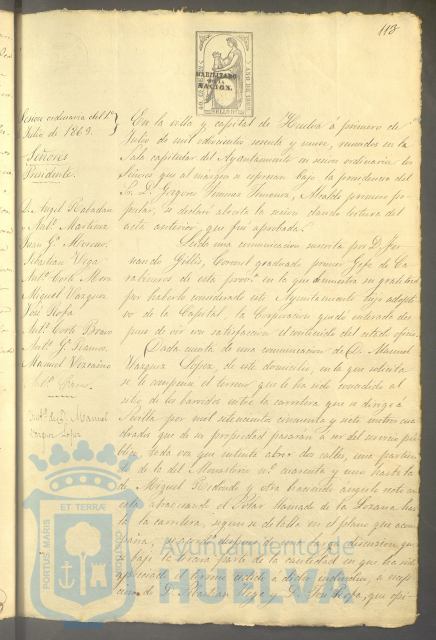 113
HABILITADO
POR LA
NACION.
Sesion ordinaria del 1º
Julio de 1869.
Señores
Presidente.
D. Angel Rabadan
" Antº. Martinez
Juan Gª. Moreno
Sebastian Vega
Antº. Corte Mora
Miguel Vazquez
José Rofa
Antº. Corte Bravo
Antº. Gª. Ramos
Manuel Vizcaino
D. Manuel
Vazquez Lopez
En la villa y capital de Huelva á primero de
Julio de mil ochocientos sesenta y nueve, reunidos en la
Sala capitular del Ayuntamiento en sesion ordinaria los
Señores que al margen se espresan bajo la presidencia del
Sr. D. Gregorio Jimenez, Alcalde primero po-
pular, se declaró abierta la sesion dando lectura del
acta anterior que fué aprobada.
Leida una comunicacion suscrita por D. Fer-
nando Gillis, Coronel graduado primer Gefe de Ca-
rabineros de esta provª. en la que demuestra su gratitud
por haberlo considerado este Ayuntamiento hijo adopti-
vo de la Capital, la Corporacion quedó enterada des-
pues de oir con satisfaccion el contenido del citado oficio.
Dada cuenta de una comunicacion de D. Manuel
Vazquez Lopez, de este domicilio, en la que solicita
se le compense el terreno que le ha sido concedido al
sitio de los barreros entre la carretera que se dirige á
Sevilla por mil setecientos cincuenta y siete metros cua-
drados que de su propiedad pasarán a ser del servicio pú-
blico, toda vez que intenta abrir dos calles, una partien-
do de la del Monasterio nº. cuarenta y uno hasta la
de Miguel Redondo y otra haciendo angulo recto con
esta atravesando el Solar llamado de la Lozana, has-
ta la carretera, segun se detalla en el plano que acom-
paña, se acordó despues de una larga discusion que
bajo la tercera parte de la cantidad en que ha sido
apreciado el terreno cedido a dicho individuo, a
D. Martin Vega y D. José Rofa, que opi-
PORTUS MARIS
ET TERRAE
CUSTODIA
Ayuntamiento de
HUELVA